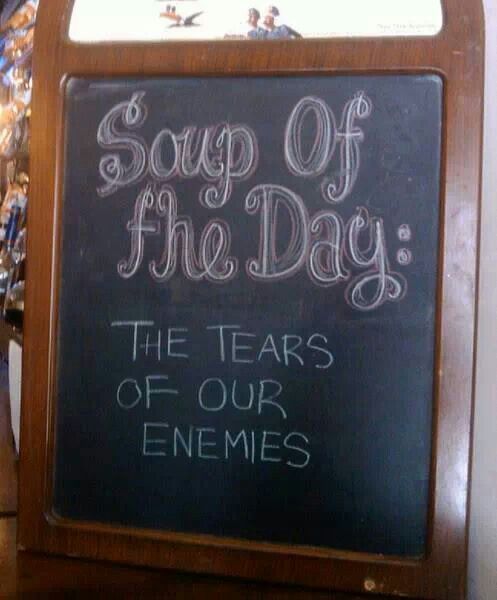 Soup Of
the Day:
THE TEARS
OF OUR
ENEMIES